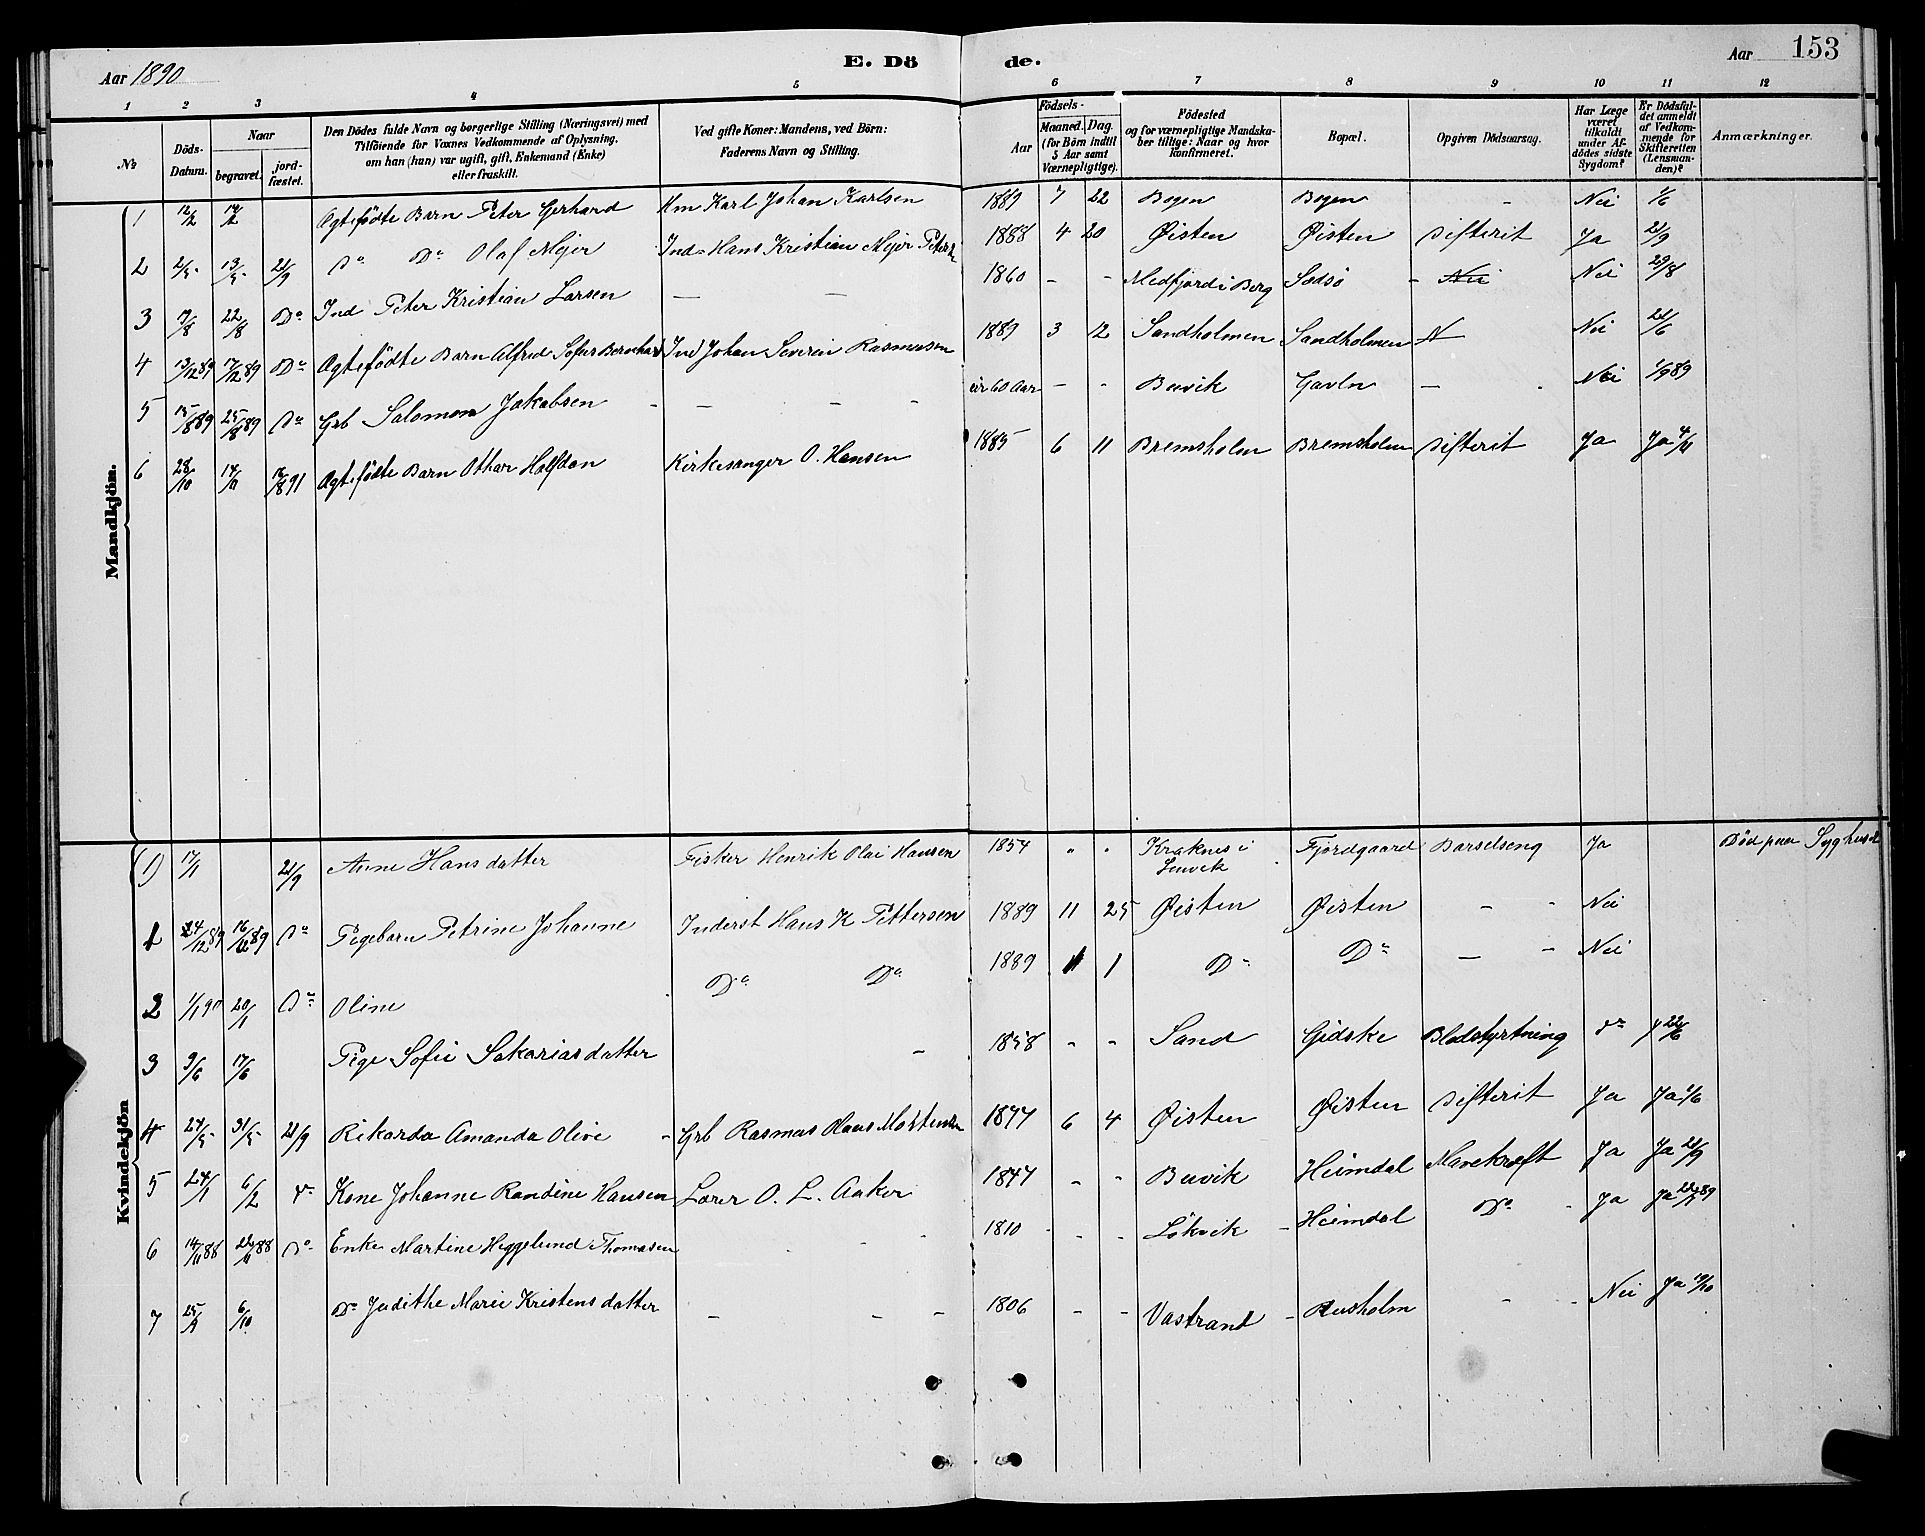 Aar 1890
E. Dö de.
Aar 153
1 2 3 4 5 6 7 8 9 10 11 12
No
Döds-Datum.
Naar
begravet.
jord-fæstet.
Den Dödes fulde Navn og borgerlige Stilling (Næringsvei) med
Tilföiende for Voxnes Vedkommende af Oplysning,
om han (hun) var ugift, gift, Enkemand (Enke)
eller fraskilt.
Ved gifte Koner: Mandens, ved Börn:
Faderens Navn og Stilling.
Födsels-
Aar
Maaned.
Dag.
(for Börn indtil
5 Aar samt
Værnepligtige).
Födested
og for værnepligtige Mandska-
ber tillige: Naar og hvor
konfirmeret.
Bopæl.
Opgiven Dödsaarsag.
Har Læge
været
tilkaldt
under Af-
dödes sidste
Sygdom?
Er Dödsfal-
det anmeldt
af Vedkom-
mende for
Skifteretten
(Lensman-
den)?
Anmærkninger.
Mandkjön.
1 12/2 14/2 Ægtefödte Barn Peter Gerhard Hm Karl Johan Karlsen 1889 7 22 Bogen Bogen - Nei 1/6
2 2/5 13/5 21/9 Do Do Olaf Mejer Ind. Hans Kristian Mejer Peters 1888 4 20 Øisten Øisten Difterit Ja 21/9
3 17/8 22/8 Do Ind Peter Kristian Larsen — — 1860 - - Medfjord i Berg Sodsö - Nei Nei 29/8
4 13/12 89 17/12 89 Do Ægtefödte Barn Alfred Sofus Bernhard Ind Johan Severin Rasmusen 1889 3 12 Sandholmen Sandholmen N Nei 21/6
5 15/8 89 25/8 89 Do Grb Salomon Jakobsen - - - - cir 60 Aar - - Buvik Gavln - Nei 1/9 89
6 28/10 14/11 16/8 91 Ægtefödte Barn Othar Halfdan Kirkesanger O. Hansen 1885 6 11 Bremsholm Bremsholm Difterit Ja Ja 4/11
Kvindekjön
(1) 17/1 21/9 Anne Hansdatter Fisker Henrik Olai Hansen 1854 " " Kraknes i Fjordgaard Barselseng Ja Död paa Syghuset
Lenvik
1 24/12 89 16/12 89 Do Pigebarn Petrine Johanne Inderst Hans K Pettersen 1889 11 25 Øisten Øisten - - Nei
2 1/1 90 20/1 Do Oline Do Do 1889 11 1 Do Do - - Nei
3 9/6 17/6 Pige Sofie Sakariasdatter - 1858 - - Sand Gidske Blodstyrtning Do 22/6
4 27/5 31/5 21/9 Rikarda Amanda Olive - Grb Rasmus Hans Mortensen 1877 6 4 Øisten Øisten Difterit Ja Ja 1/6
5 24/1 6/2 Do Kone Johanne Randine Hansen Lærer O. L. Aaker 1847 - - Buvik Heimdal Mavekræft Ja Ja 21/9
6 14/11 88 22/11 88 Do Enke Martine Heggelund Thomasen - - - 1810 - - Lökvik - Heimdal Do - Ja Ja 89
7 25/9 6/10 Do Judithe Marie Kristensdatter - - - 1806 - - Vastrand - Rusholm - - Nei Ja 19/10